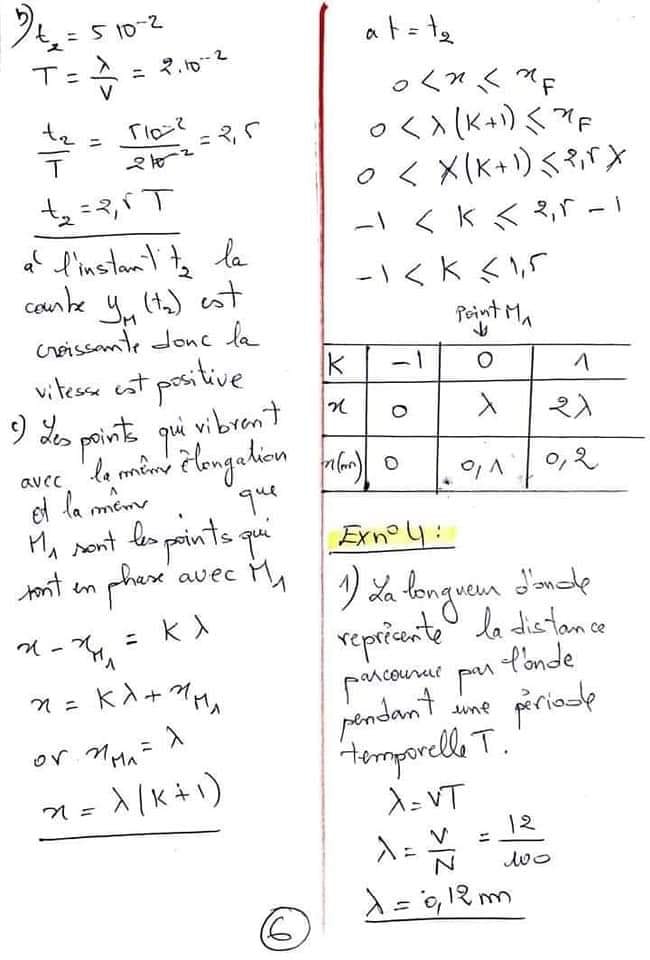 b) t₂ = 5 10⁻²
T = λ/V = 2.10⁻²
t₂/T = 5 10⁻²/2 10⁻² = 2,5
t₂ = 2,5 T
à l'instant t₂ la
courbe y_M (t₂) est
croissante donc la
vitesse est positive
c) Les points qui vibrent
avec la même élongation
et la même que
M₁ sont les points qui
sont en phase avec M₁
x - x_M₁ = K λ
x = K λ + x_M₁
or x_M₁ = λ
x = λ (K+1)
a t = t₂
0 < x ≤ x_F
0 < λ (K+1) ≤ x_F
0 < λ (K+1) ≤ 2,5 λ
-1 < K ≤ 2,5 - 1
-1 < K ≤ 1,5
Point M₁
↓
K -1 0 1
x 0 λ 2λ
x(m) 0 0,1 0,2
Ex n° 4 :
1) La longueur d'onde
représente la distance
parcourue par l'onde
pendant une période
temporelle T.
λ = VT
λ = V/N = 12/100
λ = 0,12 m
6